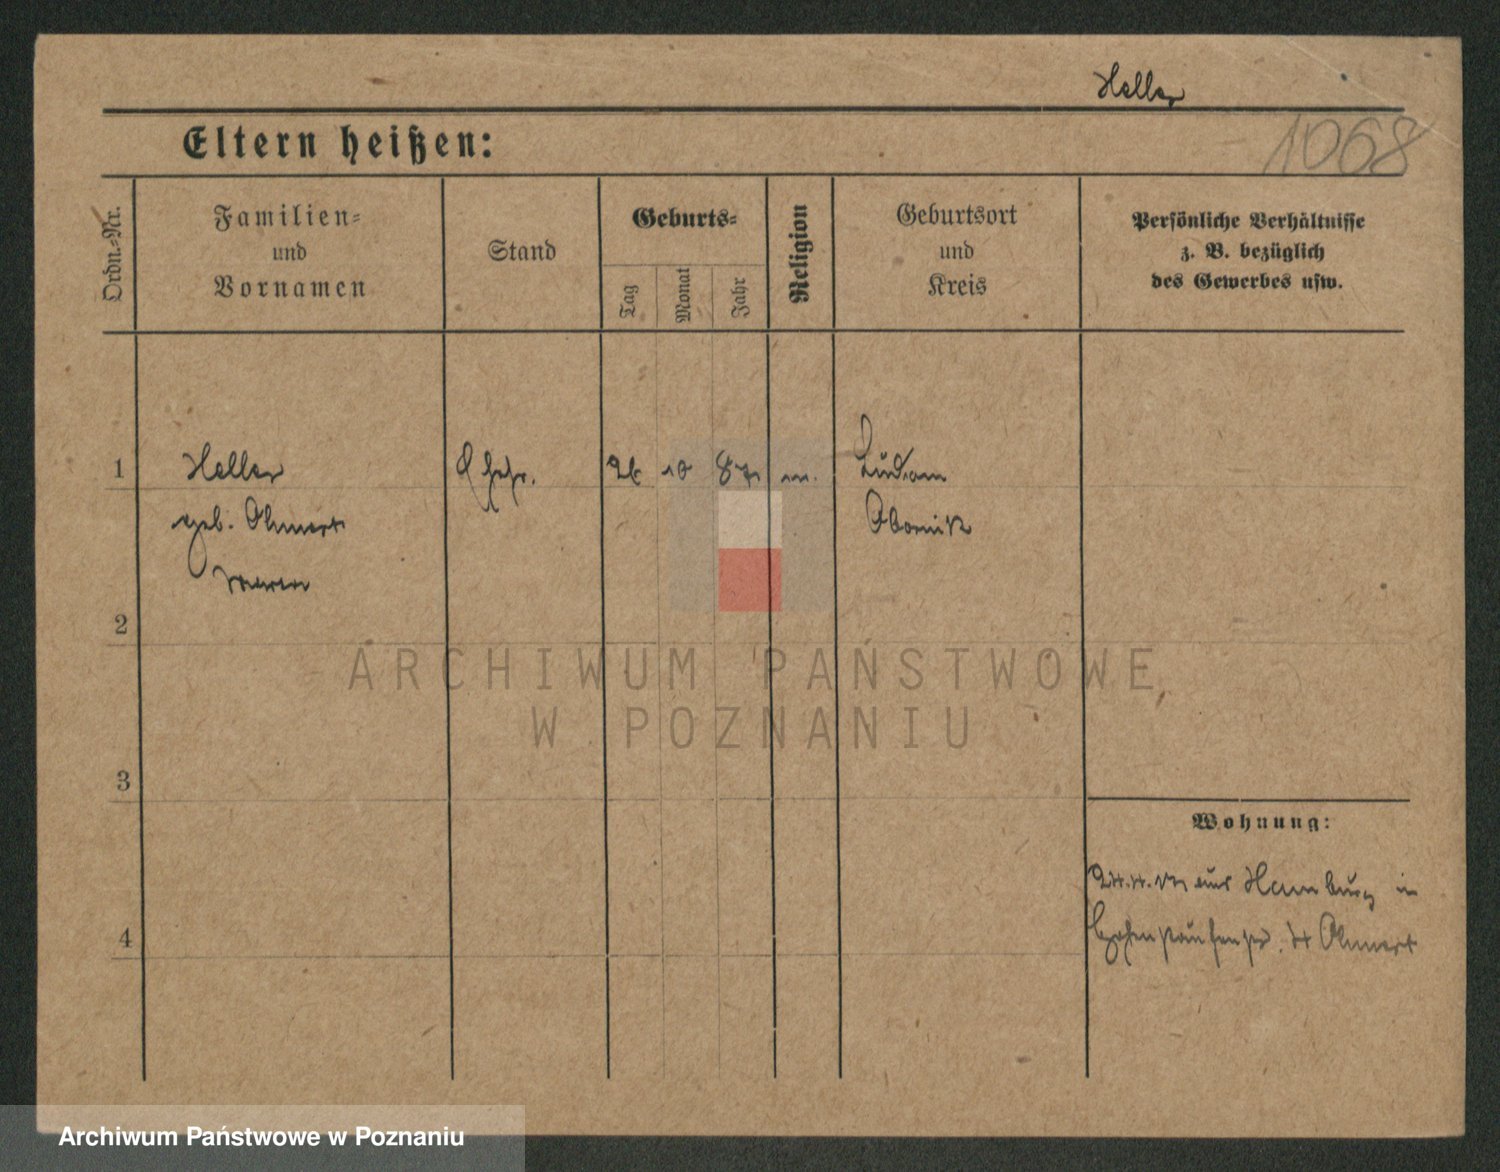 Heller
Eltern heißen:
1068
Ordn.-Nr.
Familien-
und
Vornamen
Stand
Geburts-
Tag
Monat
Jahr
Religion
Geburtsort
und
Kreis
Persönliche Verhältnisse
z. B. bezüglich
des Gewerbes usw.
1
Heller
26 10 87
Ludom
geb. Ohnert
Obornik
2
3
4
Wohnung:
aus Hamburg in
Hohenstaufenstr. Ohnert
ARCHIWUM PAŃSTWOWE
W POZNANIU
Archiwum Państwowe w Poznaniu